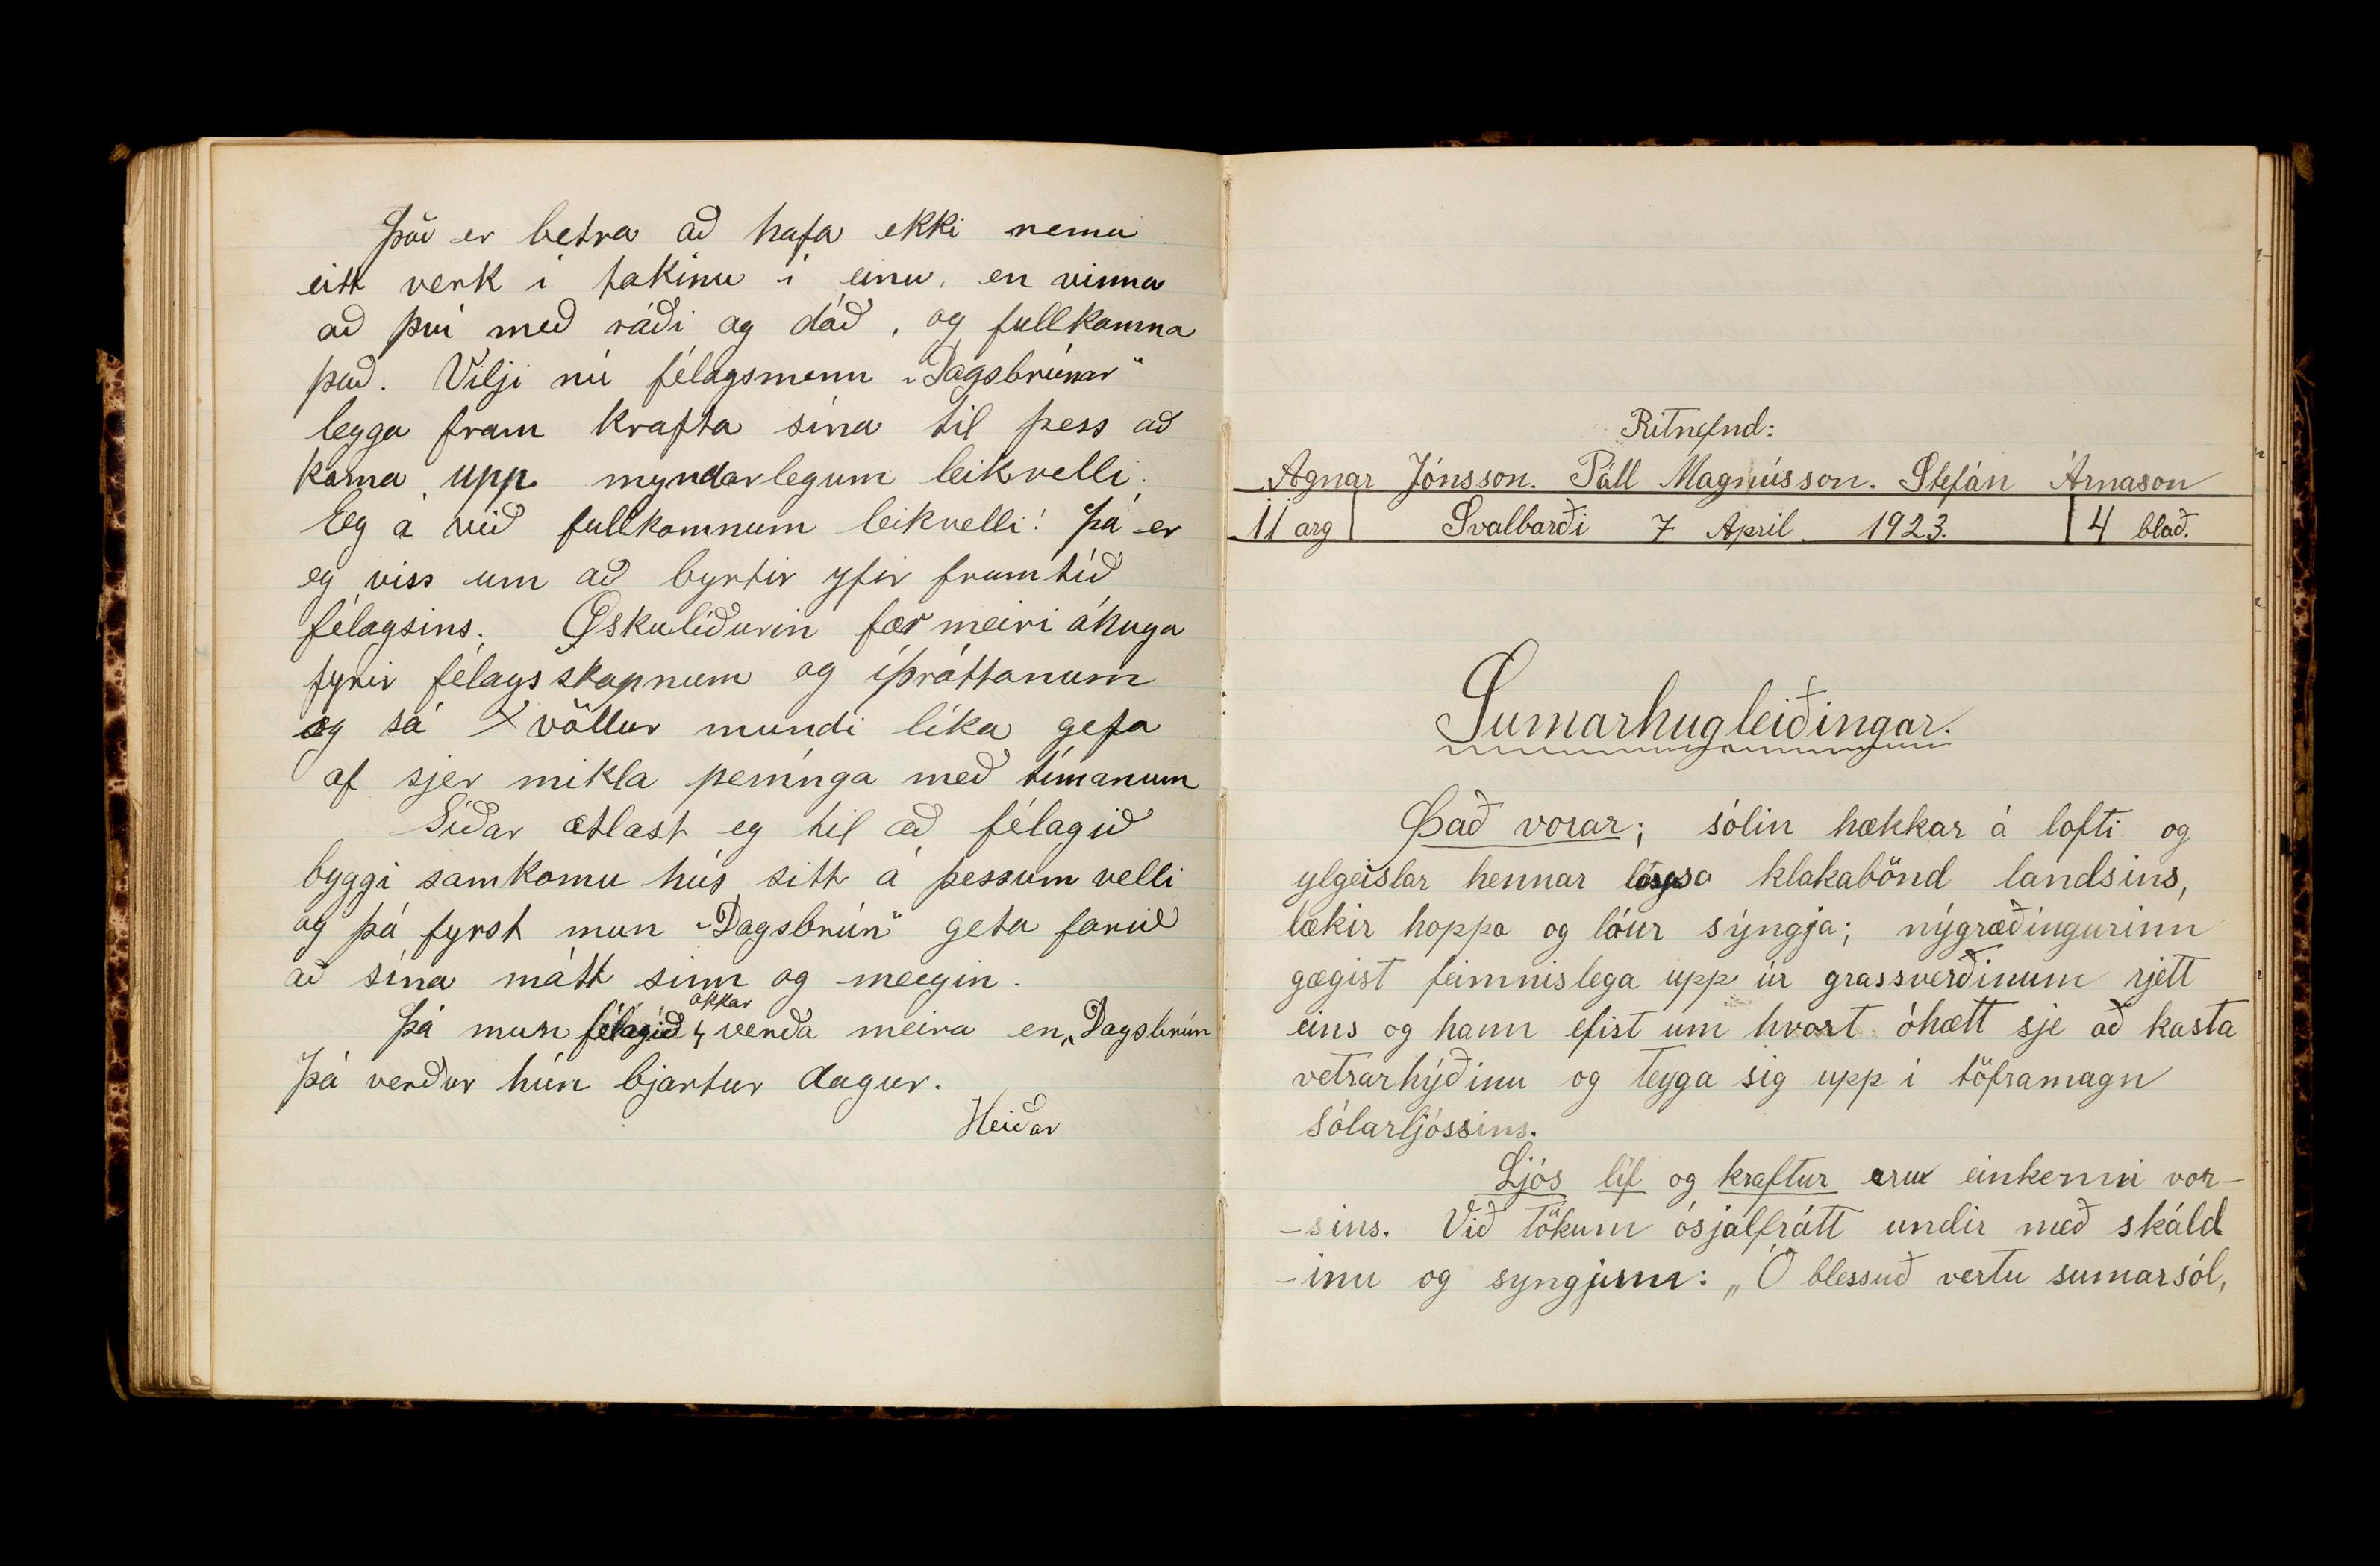 Það er betra að hafa ekki nema
eitt verk í takinu í einu, en vinna
að því með ráði og dáð, og fullkomna
það. Vilji nú félagsmenn „Dagsbrúnar“
leggja fram krafta sína til þess að
koma upp myndarlegum leikvelli.
Eg á við fullkomnum leikvelli! Þá er
eg viss um að byrtir yfir framtíð
félagsins. Öskulíðurin fær meiri áhuga
fyrir félagsskapnum og íþróttanum
og sá völlur mundi líka gefa
af sjer mikla penínga með tímanum
Síðar ætlast eg til að félagið
byggi samkomu hús sitt á þessum velli
og þá fyrst mun „Dagsbrún“ geta farið
að sína mátt sinn og meigin.
Þá mun félagið okkar verða meira en „Dagsbrún
Þá verður hún bjartur dagur.
Heiðar
Ritnefnd:
Agnar Jónsson. Páll Magnússon. Stefán Árnason
11 arg Svalbarði 7 April. 1923. 4 blað.
Sumarhugleiðingar.
Það vorar; sólin hækkar á lofti og
ylgeislar hennar leysa klakabönd landsins,
lækir hoppa og lóur sýngja; nýgræðingurinn
gægist feimnislega upp úr grassverðinum rjett
eins og hann efist um hvort óhætt sje að kasta
vetrarhýðinu og teyga sig upp í töframagn
sólarljóssins.
Ljós líf og kraftur eru einkenni vor-
-sins. Við tökum ósjálfrátt undir með skáld
-inu og syngjum: „Ó blessuð vertu sumarsól,